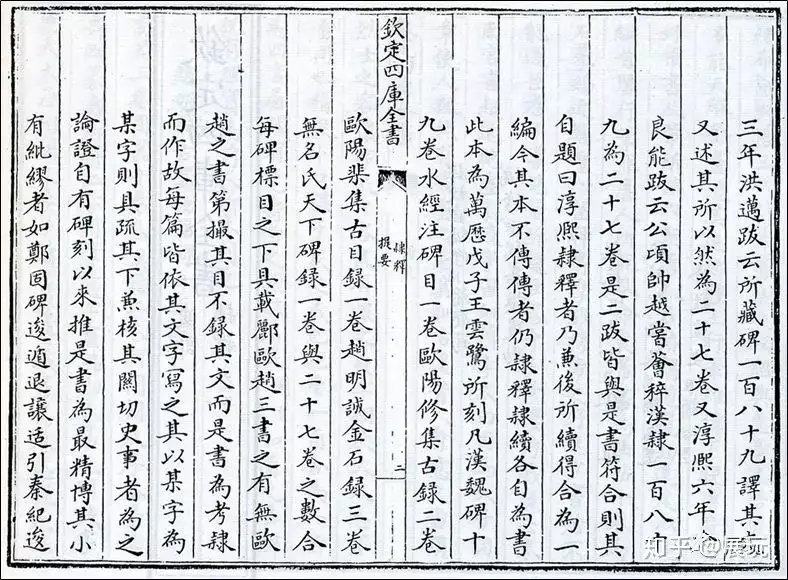 三年洪邁跋云所藏碑一百八十九譯其文
又述其所以然為二十七卷又淳熙六年
良能跋云公頃帥越嘗薈稡漢隸一百八十
九為二十七卷是二跋皆與是書符合則其
自題曰淳熙隸釋者乃兼後所續得合為一
編今其本不傳傳者仍隸釋隸續各自為書
此本為萬歷戊子王雲鷺所刻凡漢魏碑十
九卷水經注碑目一卷歐陽修集古錄二卷
欽定四庫全書
隸釋
提要
二
歐陽棐集古目錄一卷趙明誠金石錄三卷
無名氏天下碑錄一卷與二十七卷之數合
每碑標目之下具載酈歐趙三書之有無歐
趙之書第撮其目不錄其文而是書為考隸
而作故每篇皆依其文字寫之其以某字為
某字則具疏其下兼核其關切史事者為之
論證自有碑刻以來推是書為最精博其小
有紕繆者如鄭固碑逡遁退讓适引秦紀逡
知乎 @展玩